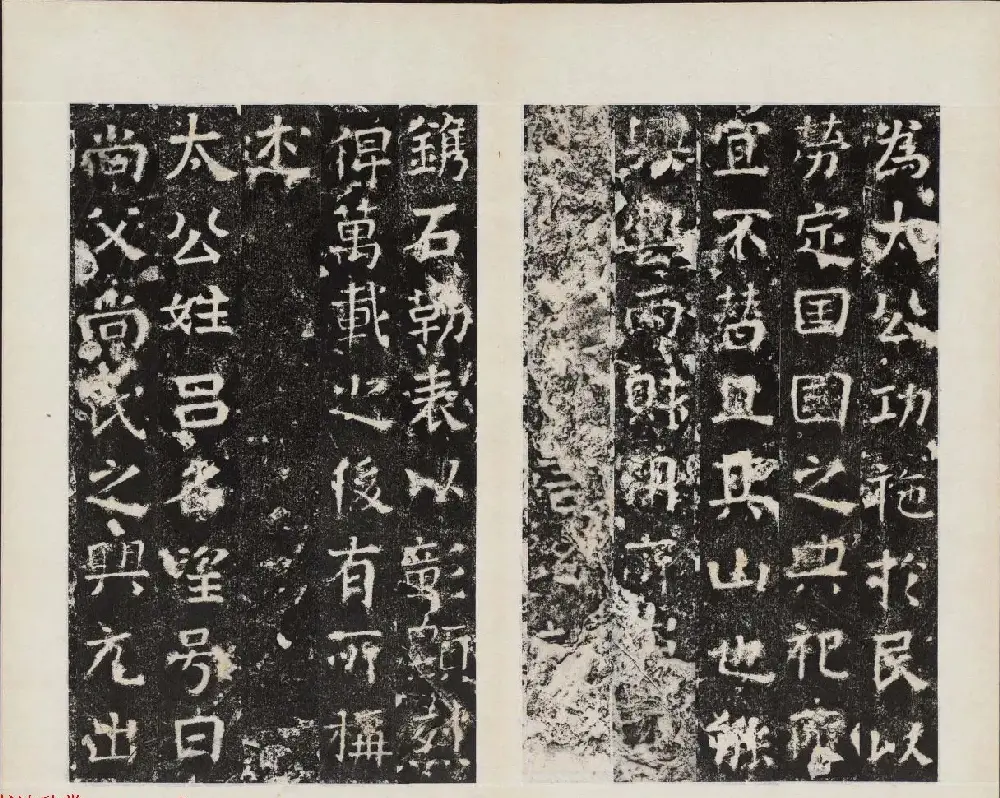 為太公功施於民以
勞定国國之典祀
宜不替且其山也能
興雨財用
鐫石勒表以彰顯烈
俾萬載之後有所稱
述
太公姓吕者望号曰
尚父尚氏之興元出